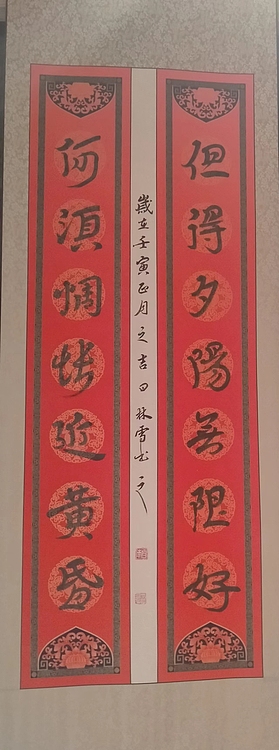 但得夕陽無限好
歲在壬寅正月之吉日林雪书之
何須惆悵近黄昏